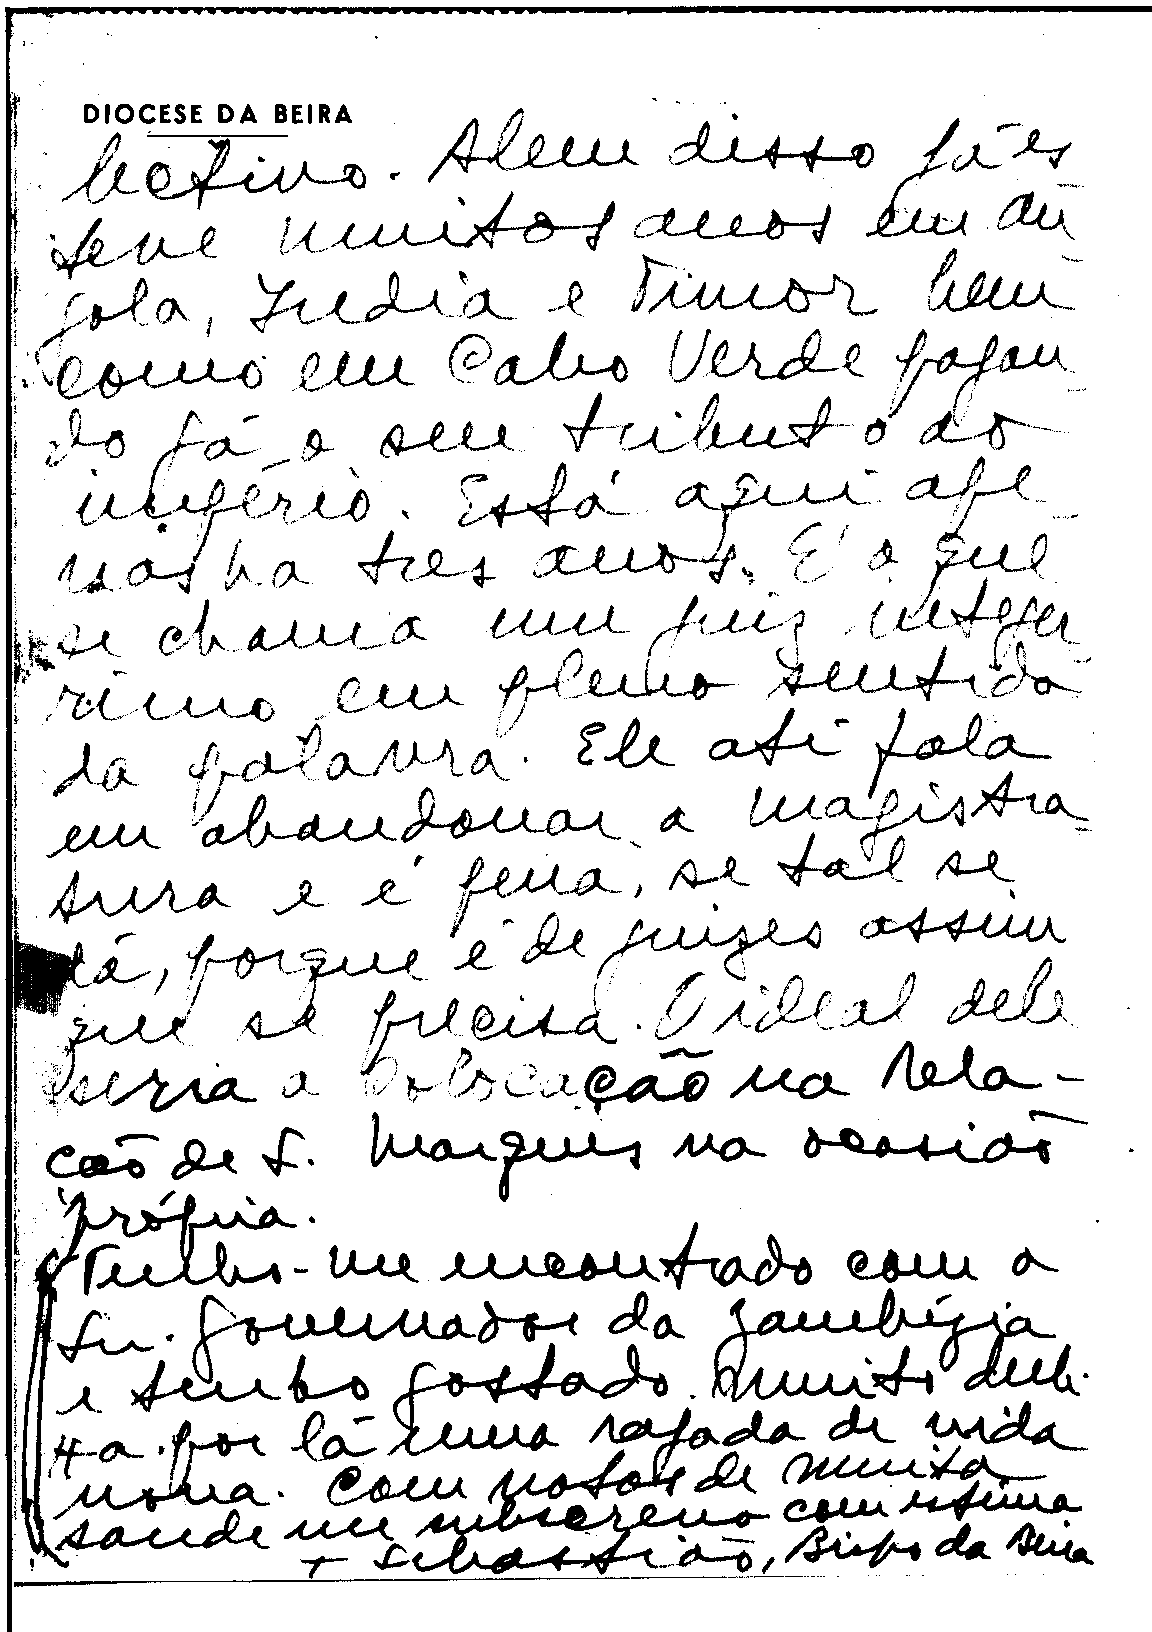 DIOCESE DA BEIRA
lectivo. Alem disso já es
teve muitos anos em An
gola, India e Timor bem
como em Cabo Verde pagan
do já o seu tributo ao
império. Está aqui ape
nas ha tres anos. É o que
se chama um juiz integer
rimo em pleno sentido
da palavra. Ele até fala
em abandonar a magistra
tura e é pena, se tal se
dá, porque é de juizes assim
que se precisa. O ideal dele
seria a colocação na Rela-
ção de L. Marques na ocasião
própria.
Tenho-me encontrado com o
Sr. Governador da Zambézia
e tenho gostado muito.
por lá uma rajada de vida
nova. Com votos de muita
saude me subscrevo com estima
+ Sebastião, Bispo da Beira